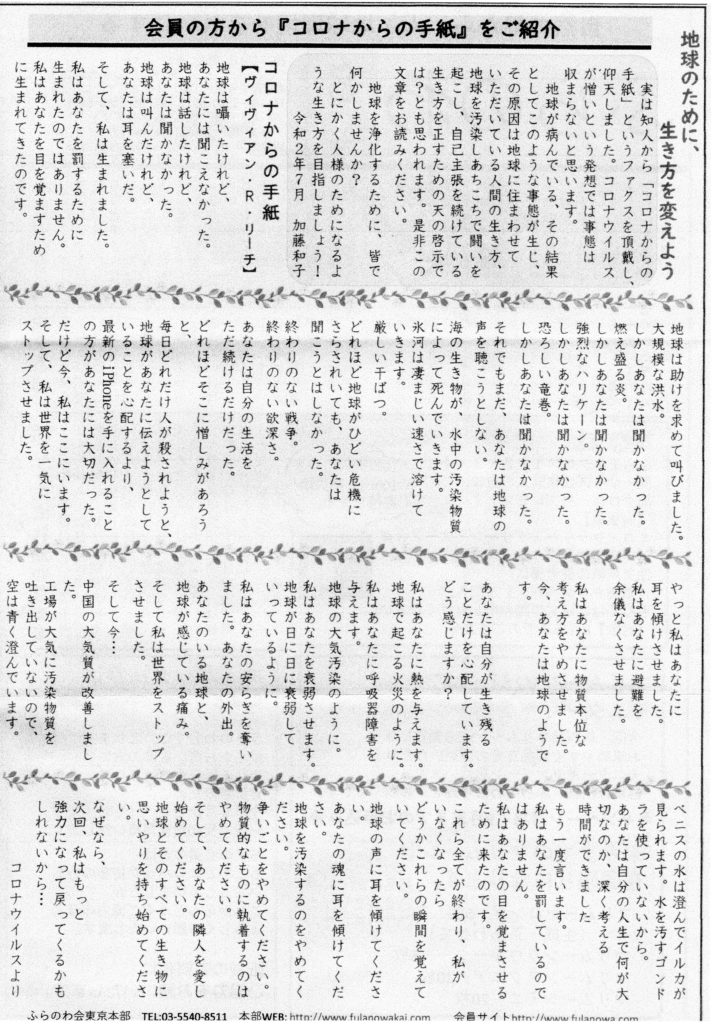 会員の方から『コロナからの手紙』をご紹介
地球のために、
生き方を変えよう
実は知人から「コロナからの
手紙」というファクスを頂戴し、
仰天しました。コロナウイルス
が憎いという発想では事態は
収まらないと思います。
地球が病んでいる、その結果
としてこのような事態が生じ、
その原因は地球に住まわせて
いただいている人間の生き方、
地球を汚染しあちこちで闘いを
起こし、自己主張を続けている
生き方を正すための天の啓示で
は？とも思われます。是非この
文章をお読みください。
地球を浄化するために、皆で
何かしませんか？
とにかく人様のためになるよ
うな生き方を目指しましょう！
令和２年７月　加藤和子
コロナからの手紙
【ヴィヴィアン・R・リーチ】
地球は囁いたけれど、
あなたには聞こえなかった。
地球は話したけれど、
あなたは聞かなかった。
地球は叫んだけれど、
あなたは耳を塞いだ。
そして、私は生まれました。
私はあなたを罰するために
生まれたのではありません。
私はあなたを目を覚ますため
に生まれてきたのです。
地球は助けを求めて叫びました。
大規模な洪水。
しかしあなたは聞かなかった。
燃え盛る炎。
しかしあなたは聞かなかった。
強烈なハリケーン。
しかしあなたは聞かなかった。
恐ろしい竜巻。
しかしあなたは聞かなかった。
それでもまだ、あなたは地球の
声を聴こうとしない。
海の生き物が、水中の汚染物質
によって死んでいきます。
氷河は凄まじい速さで溶けて
いきます。
厳しい干ばつ。
どれほど地球がひどい危機に
さらされいても、あなたは
聞こうとはしなかった。
終わりのない戦争。
終わりのない欲深さ。
あなたは自分の生活を
ただ続けるだけだった。
どれほどそこに憎しみがあろう
と、
毎日どれだけ人が殺されようと、
地球があなたに伝えようとして
いることを心配するより、
最新のIPhoneを手に入れること
の方があなたには大切だった。
だけど今、私はここにいます。
そして、私は世界を一気に
ストップさせました。
やっと私はあなたに
耳を傾けさせました。
私はあなたに避難を
余儀なくさせました。
私はあなたに物質本位な
考え方をやめさせました。
今、あなたは地球のようで
す。
あなたは自分が生き残る
ことだけを心配しています。
どう感じますか？
私はあなたに熱を与えます。
地球で起こる火災のように。
私はあなたに呼吸器障害を
与えます。
地球の大気汚染のように。
私はあなたを衰弱させます。
地球が日に日に衰弱して
いっているように。
私はあなたの安らぎを奪い
ました。あなたの外出。
あなたのいる地球と、
地球が感じている痛み。
そして私は世界をストップ
させました。
そして今…
中国の大気質が改善しまし
た。
工場が大気に汚染物質を
吐き出していないので、
空は青く澄んでいます。
ベニスの水は澄んでイルカが
見られます。水を汚すゴンド
ラを使っていないから。
あなたは自分の人生で何が大
切なのか、深く考える
時間ができました
もう一度言います。
私はあなたを罰しているので
はありません。
私はあなたの目を覚まさせる
ために来たのです。
これら全てが終わり、私が
いなくなったら
どうかこれらの瞬間を覚えて
いてください。
地球の声に耳を傾けてくださ
い。
あなたの魂に耳を傾けてくだ
さい。
地球を汚染するのをやめてく
ださい。
争いごとをやめてください。
物質的なものに執着するのは
やめてください。
そして、あなたの隣人を愛し
始めてください。
地球とそのすべての生き物に
思いやりを持ち始めてくださ
い。
なぜなら、
次回、私はもっと
強力になって戻ってくるかも
しれないから…
コロナウイルスより
ふらのわ会東京本部　TEL:03-5540-8511　本部WEB:http://www.fulanowakai.com　会員サイトhttp://www.fulanowa.com